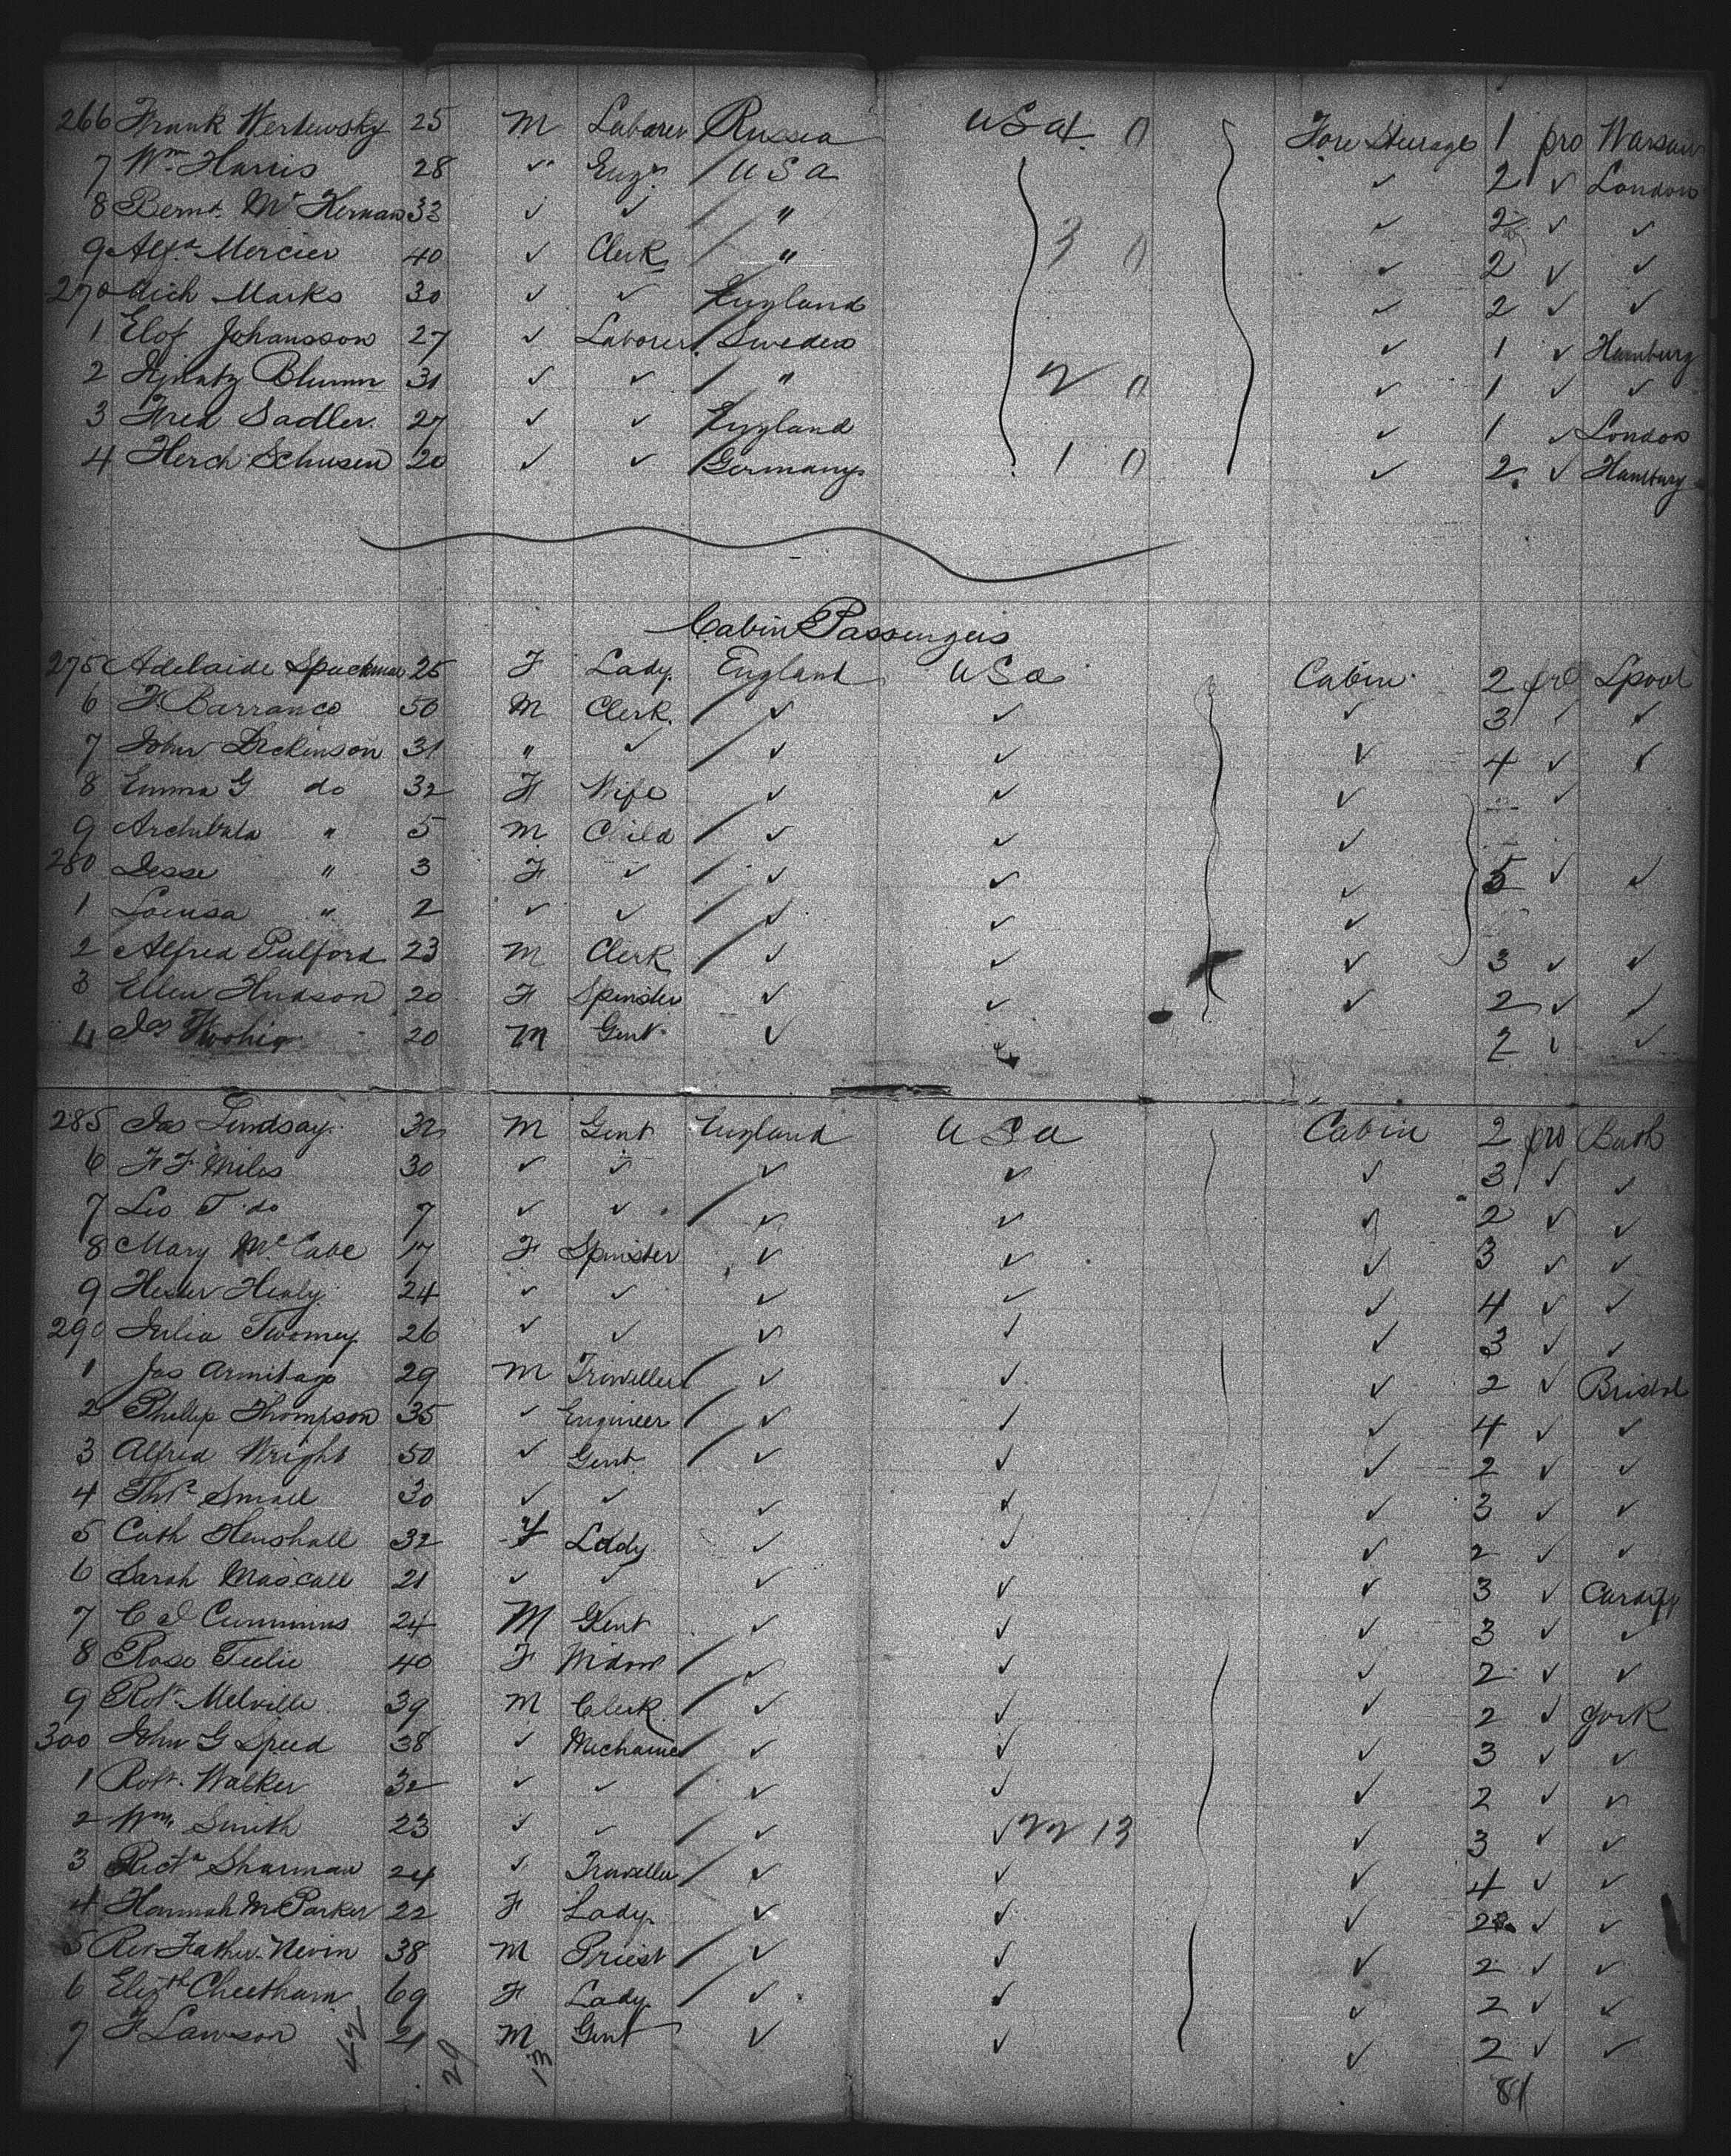 266 Frank Wertewsky 25 M Laborer Russia USA 0 Fore Steerage 1 pro Warsaw
7 Wm Harris 28 ✓ Engr / USA ✓ 2 ✓ London
8 Bernt. Mc Kernan 33 ✓ ✓ / " ✓ 2 ✓ ✓
9 Alexr Mercier 40 ✓ Clerk / " 3 0 ✓ 2 ✓ ✓
270 Mich Marks 30 ✓ ✓ England ✓ 2 ✓ ✓
1 Elof Johansson 27 ✓ Laborer / Sweden ✓ 1 ✓ Hamburg
2 Blumm 31 ✓ ✓ / " 2 0 ✓ 1 ✓ ✓
3 Fred Sadler 27 ✓ ✓ England ✓ 1 ✓ London
4 Herch Schusen 20 ✓ ✓ / Germany 1 0 ✓ 2 ✓ Hamburg
Cabin Passengers
275 Adelaide Spackman 25 F Lady England USA Cabin 2 pro Lpool
6 F. Barranco 50 M Clerk / ✓ ✓ ✓ 3 ✓ ✓
7 John Dickinson 31 " ✓ / ✓ ✓ ✓ 4 ✓ ✓
8 Emma G do 32 F Wife ✓ ✓ ✓ ✓
9 Archibald " 5 M Child / ✓ ✓ ✓
280 Jesse " 3 F ✓ / ✓ ✓ ✓ 5 ✓ ✓
1 Louisa " 2 ✓ ✓ / ✓ ✓ ✓
2 Alfred Pulford 23 M Clerk / ✓ ✓ ✓ 3 ✓ ✓
3 Ellen Hudson 20 F Spinster ✓ ✓ ✓ 2 ✓ ✓
4 Jas Twohig 20 M Gent ✓ ✓ 2 ✓ ✓
285 Jas Lindsay 32 M Gent England USA Cabin 2 pro Bath
6 F F Miles 30 ✓ ✓ ✓ ✓ ✓ 3 ✓ ✓
7 Leo T. do 7 ✓ ✓ / ✓ ✓ ✓ 2 ✓ ✓
8 Mary McCabe 17 F Spinster ✓ ✓ ✓ 3 ✓ ✓
9 Hester Healy 24 ✓ ✓ ✓ ✓ ✓ 4 ✓ ✓
290 Julia Twomey 26 ✓ ✓ ✓ ✓ ✓ 3 ✓ ✓
1 Jas Armitage 29 M Traveller / ✓ ✓ ✓ 2 ✓ Bristol
2 Philip Thompson 35 ✓ Engineer / ✓ ✓ ✓ 4 ✓ ✓
3 Alfred Wright 50 ✓ Gent / ✓ ✓ ✓ 2 ✓ ✓
4 Thos Small 30 ✓ ✓ ✓ ✓ ✓ 3 ✓ ✓
5 Cath Henshall 32 F Lady ✓ ✓ ✓ 2 ✓ ✓
6 Sarah Mascall 21 ✓ ✓ ✓ ✓ ✓ 3 ✓ Cardiff
7 C d Cummins 24 M Gent ✓ ✓ ✓ 3 ✓ ✓
8 Rose Tulie 40 F Widow / ✓ ✓ ✓ 2 ✓ ✓
9 Robt Melville 39 M Clerk / ✓ ✓ ✓ 2 ✓ York
300 John G Speed 38 ✓ Mechanic / ✓ ✓ ✓ 3 ✓ ✓
1 Robt. Walker 32 ✓ ✓ / ✓ ✓ ✓ 2 ✓ ✓
2 Wm Smith 23 ✓ ✓ / ✓ ✓ 22 13 ✓ 3 ✓ ✓
3 Richd Sharman 24 ✓ Traveller / ✓ ✓ ✓ 4 ✓ ✓
4 Hannah M Parker 22 F Lady ✓ ✓ ✓ 2 ✓ ✓
5 Rev Father Nevin 38 M Priest / ✓ ✓ ✓ 2 ✓ ✓
6 Elizth Cheetham 69 F Lady / ✓ ✓ ✓ 2 ✓ ✓
7 F Lawson 21 M Gent ✓ ✓ ✓ 2 ✓ ✓
42 29 13 81